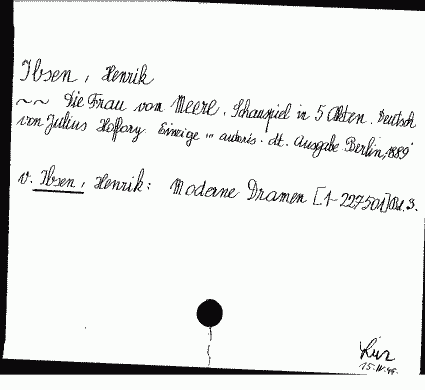 Ibsen, Henrik
~~ Die Frau vom Meere. Schauspiel in 5 Akten. Deutsch
von Julius Hoffory. Einzige ... autoris. dt. Ausgabe. Berlin, 1889
v. Ibsen, Henrik: Moderne Dramen [1-227501] Bd. 3.
15.IV.49.